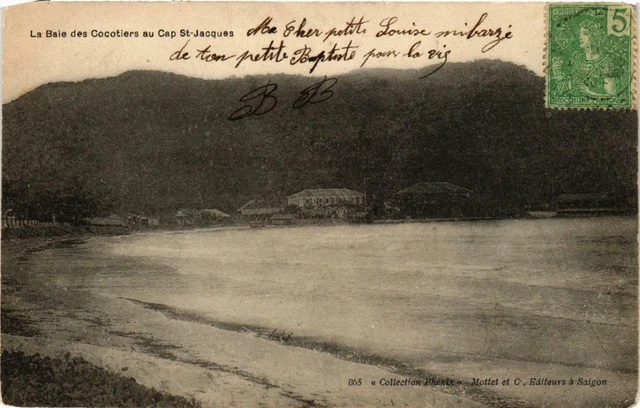 La Baie des Cocotiers au Cap St-Jacques
Ma Cher petite Louise
de ton petite Baptiste pour la vie
BB
5
865 « Collection Phénix » - Mottet et Cⁱᵉ, Editeurs à Saigon